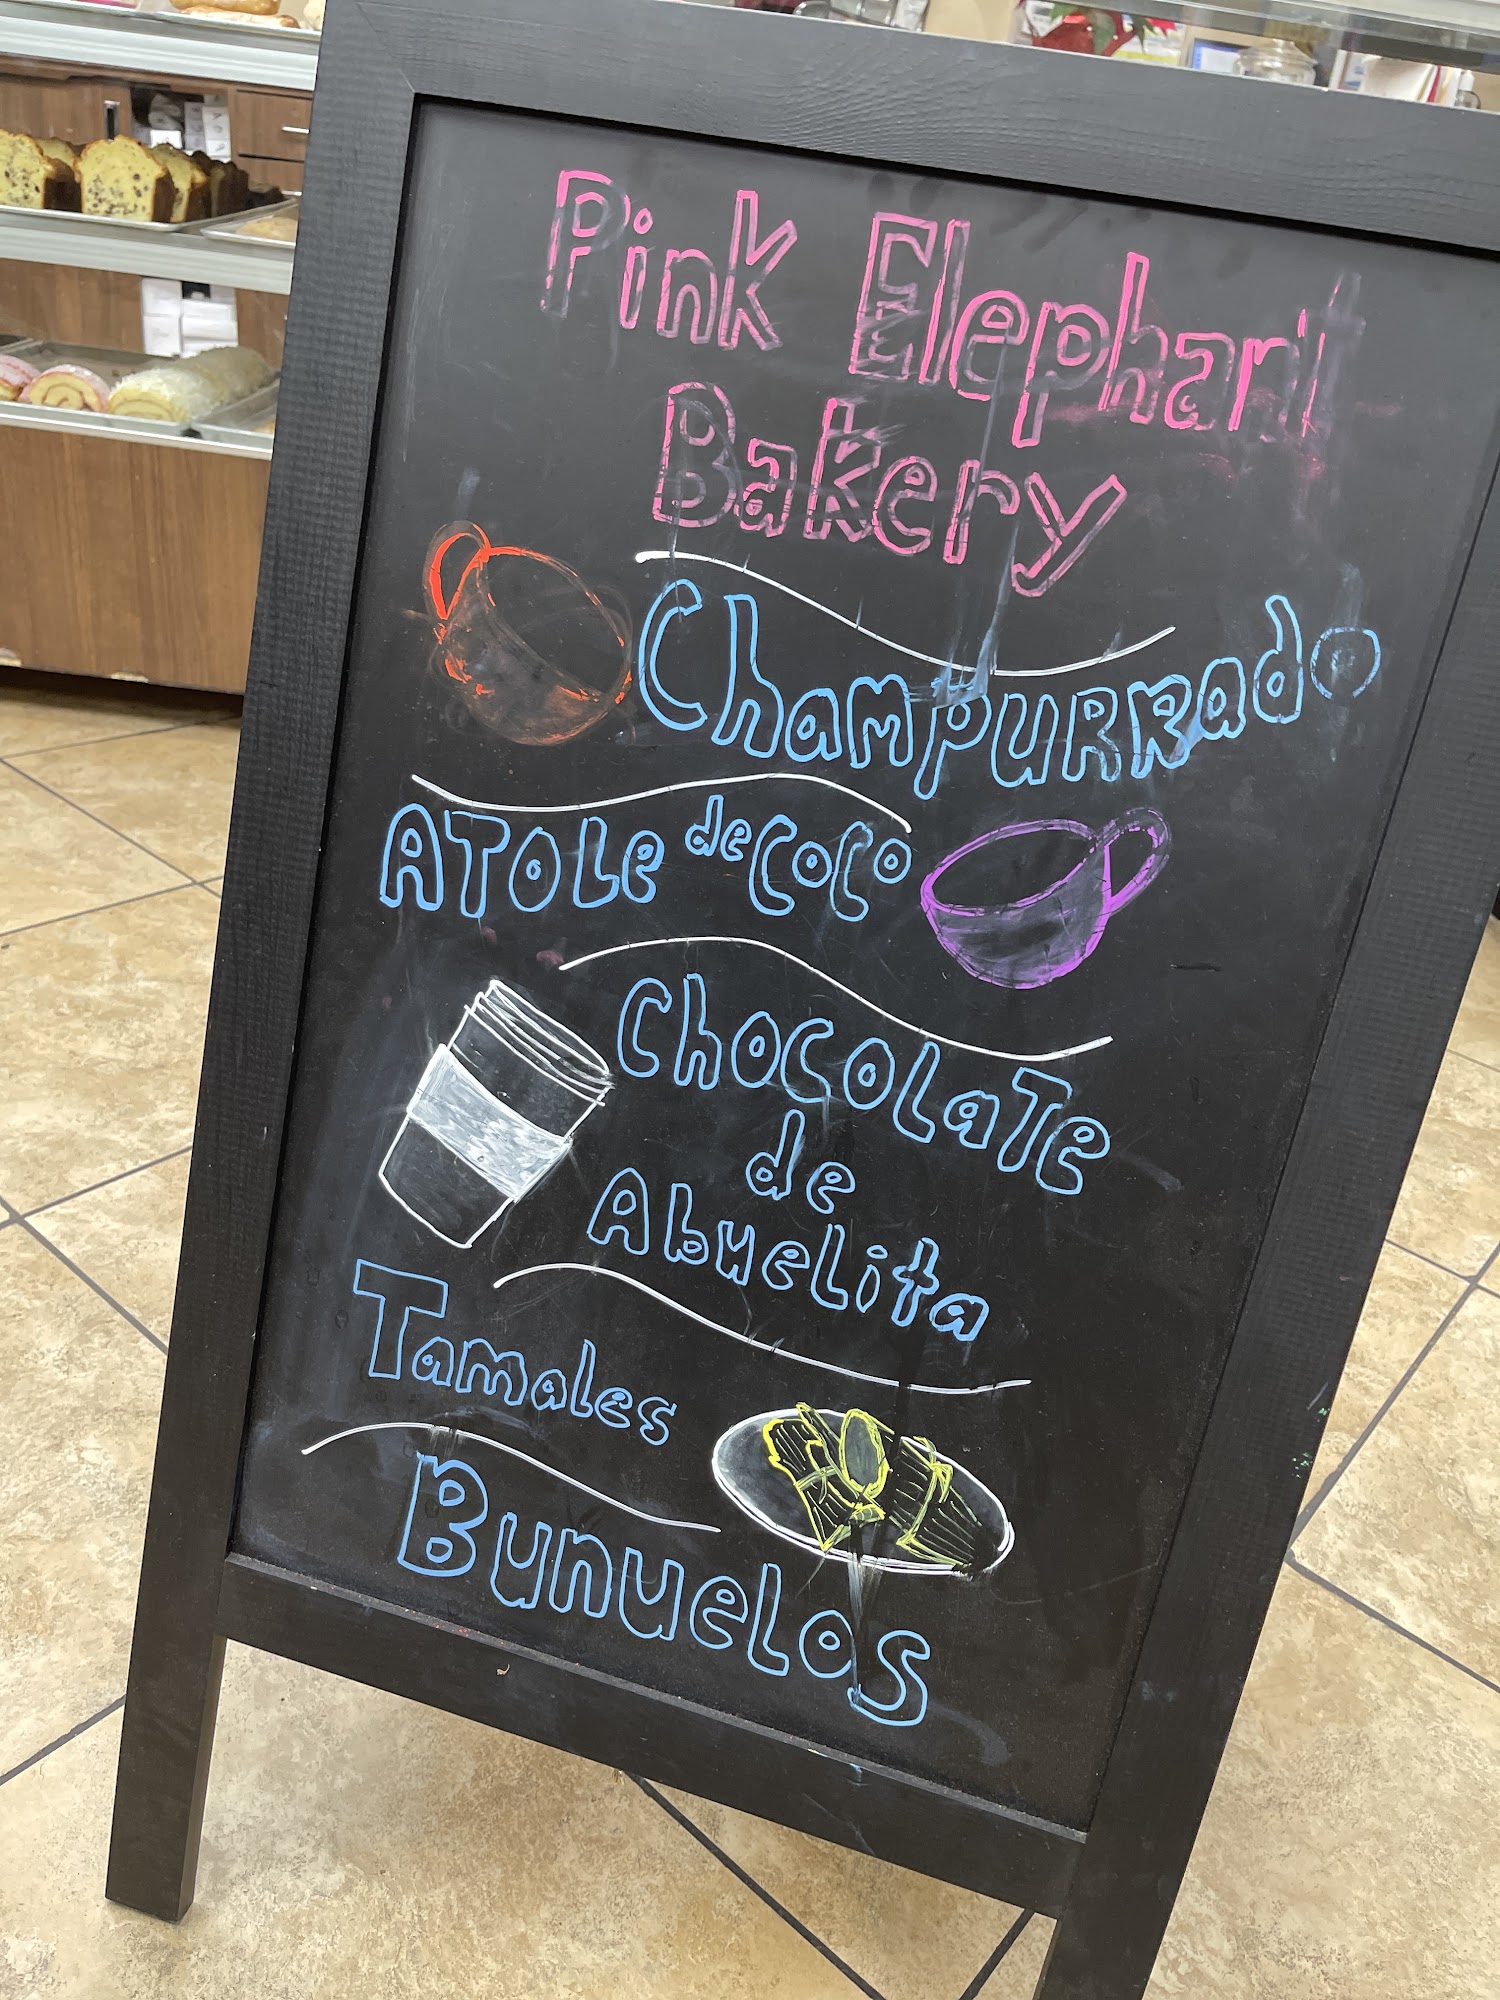 Pink Elephant
Bakery
Champurrado
ATOLe de Coco
ChocoLaTe
de
AbueLita
Tamales
BunueLos